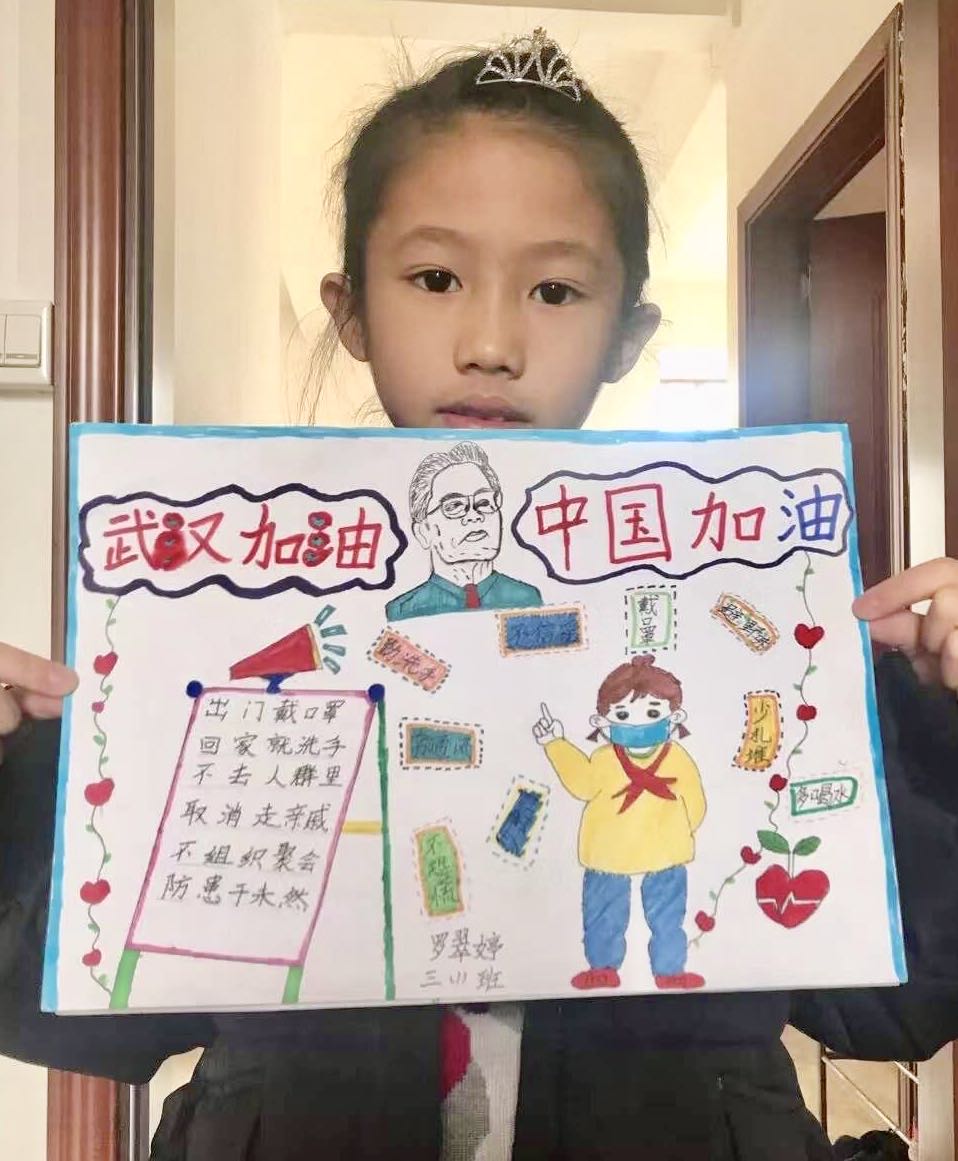 武汉加油
中国加油
勤洗手
不信谣
戴口罩
少扎堆
多喝水
不恐慌
出门戴口罩
回家就洗手
不去人群里
取消走亲戚
不组织聚会
防患于未然
罗翠婷
三(1)班